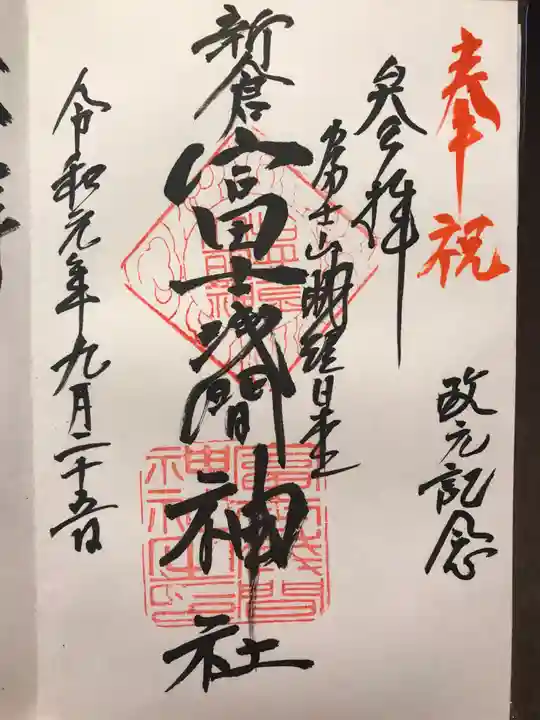 奉祝
改元記念
参拝
富士山明経日本
新倉富士浅間神社
令和元年九月二十五日